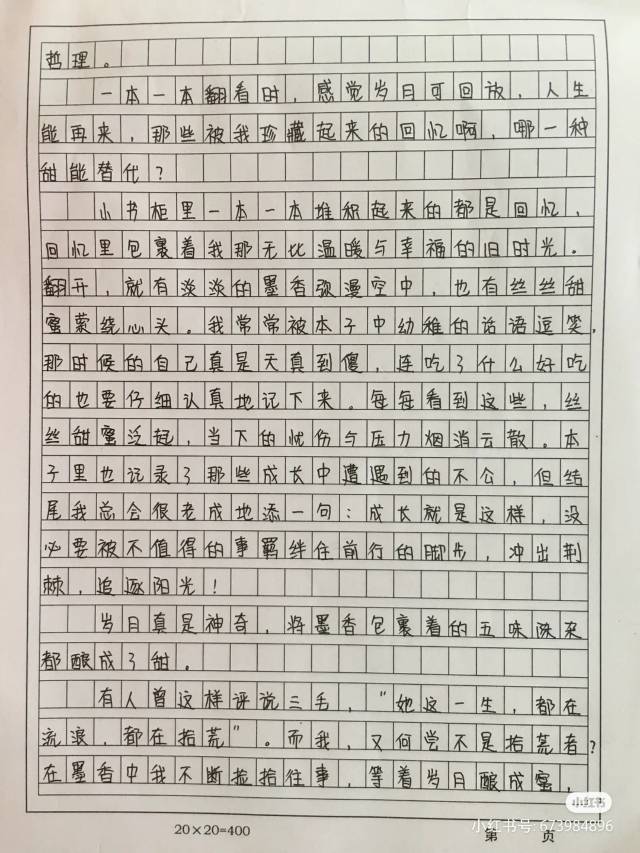 哲理。
一本一本翻看时，感觉岁月可回放，人生
能再来，那些被我珍藏起来的回忆啊，哪一种
甜能替代？
小书柜里一本一本堆积起来的都是回忆，
回忆里包裹着我那无比温暖与幸福的旧时光。
翻开，就有淡淡的墨香弥漫空中，也有丝丝甜
蜜萦绕心头。我常常被本子中幼稚的话语逗笑，
那时候的自己真是天真到傻，连吃了什么好吃
的也要仔细认真地记下来。每每看到这些，丝
丝甜蜜泛起，当下的忧伤与压力烟消云散。本
子里也记录了那些成长中遭遇到的不公，但结
尾我总会很老成地添一句：成长就是这样，没
必要被不值得的事羁绊住前行的脚步，冲出荆
棘，追逐阳光！
岁月真是神奇，将墨香包裹着的五味陈杂
都酿成了甜。
有人曾这样评说三毛，“她这一生，都在
流浪，都在拾荒”。而我，又何尝不是拾荒者？
在墨香中我不断捡拾往事，等着岁月酿成蜜，
小红书
20×20=400
第 页
小红书号: 673984896